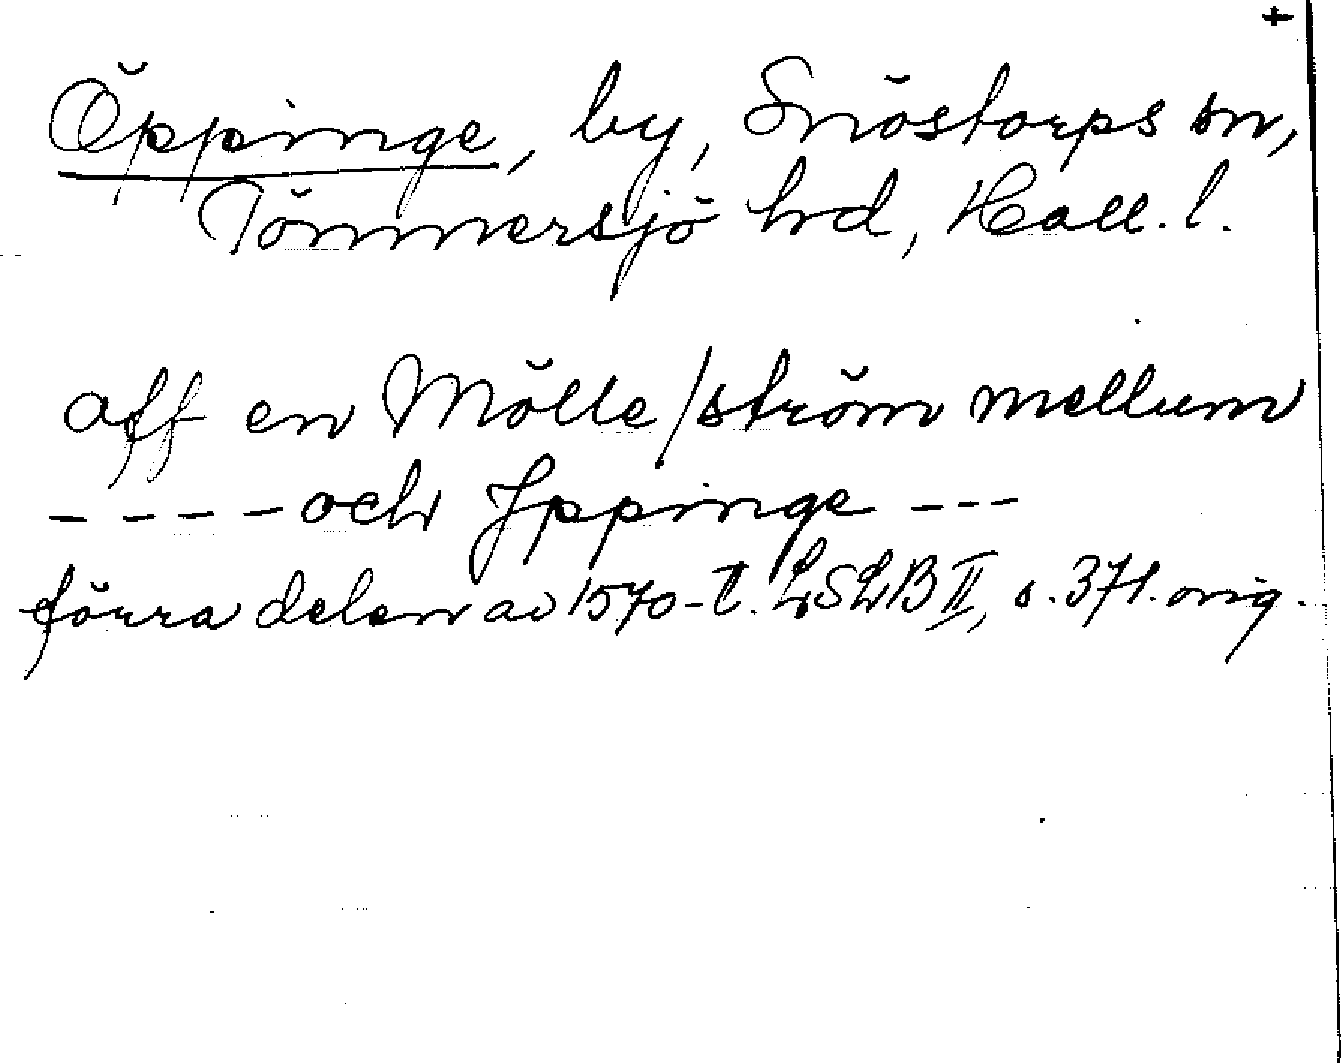 +
Öppinge, by, Snöstorps sn,
Tönnersjö hd, Hall. l.
aff en Mölle/ström mellum
---- och Jppinge ---
förra delen av 1570-t. LSLB II, s. 371. orig.